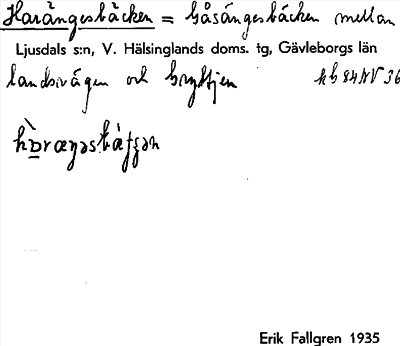 Harängesbäcken = Gåsängesbäcken mellan
Ljusdals s:n, V. Hälsinglands doms. tg, Gävleborgs län
landsvägen och
hb 84 NV 36
Erik Fallgren 1935